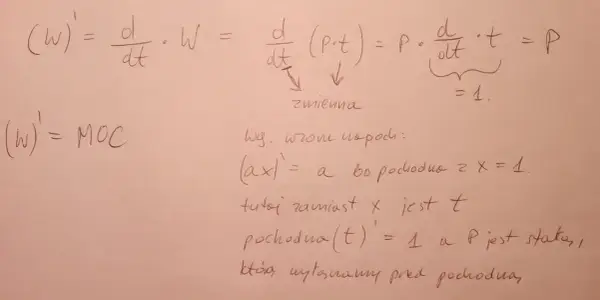 (W)' = d/dt · W = d/dt (P·t) = P · d/dt · t = P
zmienna
= 1.
(W)' = MOC
wg. wzoru na poch:
(ax)' = a bo pochodna z x = 1
tutaj zamiast x jest t
pochodna (t)' = 1 a P jest stałą,
którą wyłączamy przed pochodną